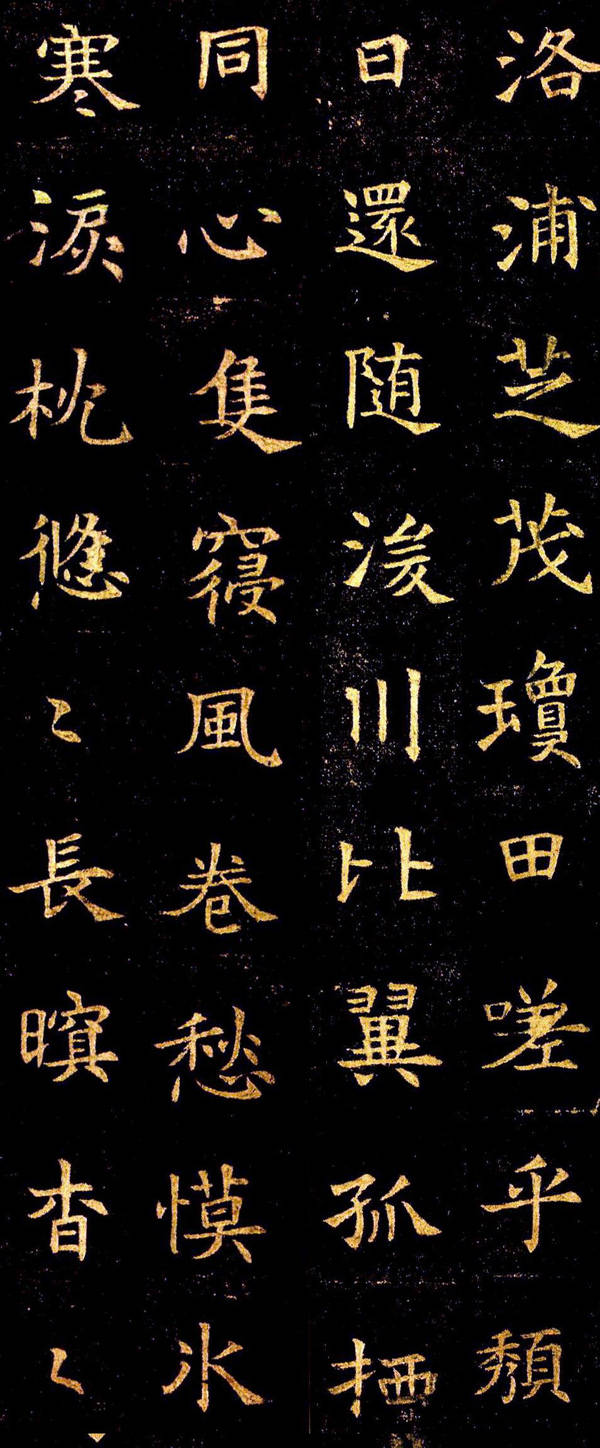 洛浦芝茂瓊田嗟乎頹
日還随浚川比翼孤栖
同心隻寝風卷愁幙氷
寒淚枕悠〻長暝杳〻